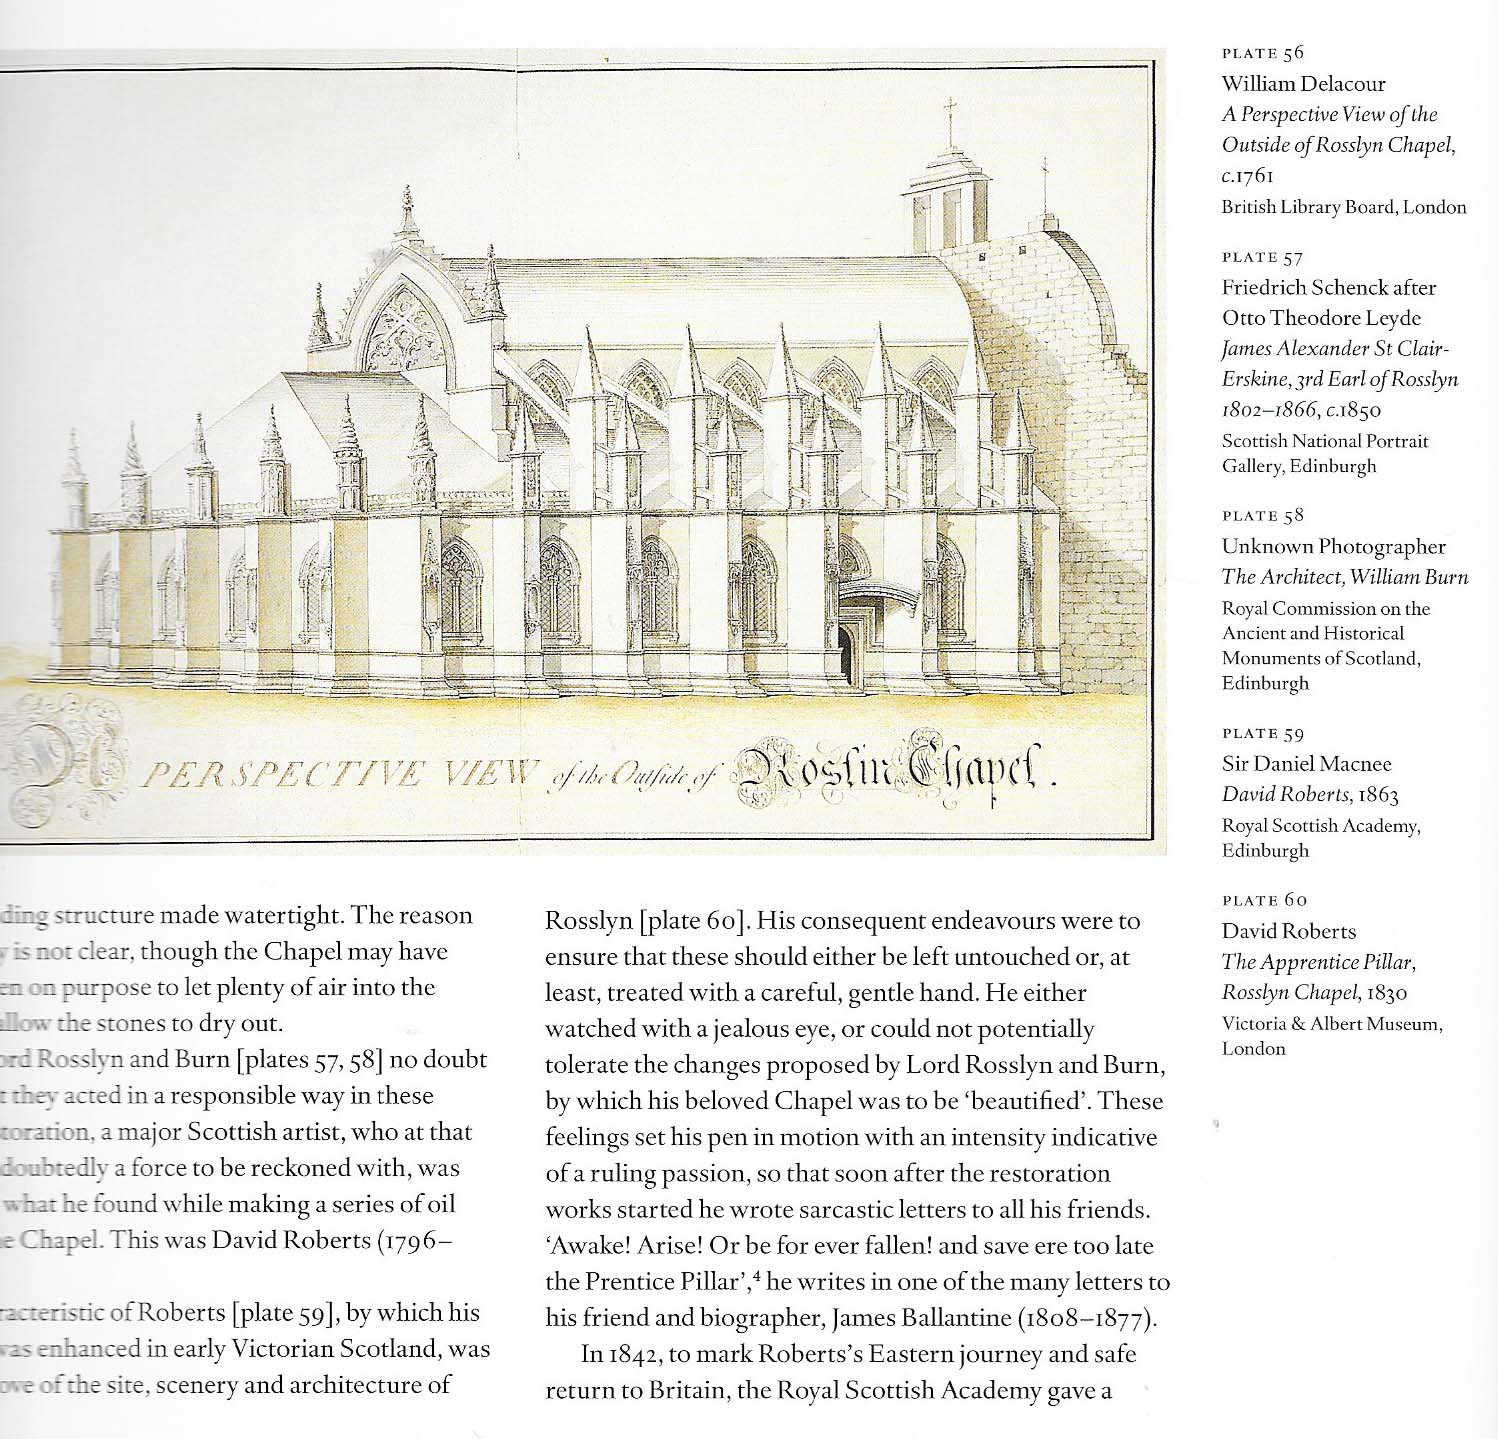 PERSPECTIVE VIEW of the Outside of Roslin Chapel.
PLATE 56
William Delacour
A Perspective View of the
Outside of Rosslyn Chapel,
c.1761
British Library Board, London
PLATE 57
Friedrich Schenck after
Otto Theodore Leyde
James Alexander St Clair-
Erskine, 3rd Earl of Rosslyn
1802–1866, c.1850
Scottish National Portrait
Gallery, Edinburgh
PLATE 58
Unknown Photographer
The Architect, William Burn
Royal Commission on the
Ancient and Historical
Monuments of Scotland,
Edinburgh
PLATE 59
Sir Daniel Macnee
David Roberts, 1863
Royal Scottish Academy,
Edinburgh
PLATE 60
David Roberts
The Apprentice Pillar,
Rosslyn Chapel, 1830
Victoria & Albert Museum,
London
ding structure made watertight. The reason
is not clear, though the Chapel may have
en on purpose to let plenty of air into the
llow the stones to dry out.
ord Rosslyn and Burn [plates 57, 58] no doubt
t they acted in a responsible way in these
toration, a major Scottish artist, who at that
doubtedly a force to be reckoned with, was
what he found while making a series of oil
e Chapel. This was David Roberts (1796–
racteristic of Roberts [plate 59], by which his
was enhanced in early Victorian Scotland, was
ove of the site, scenery and architecture of
Rosslyn [plate 60]. His consequent endeavours were to
ensure that these should either be left untouched or, at
least, treated with a careful, gentle hand. He either
watched with a jealous eye, or could not potentially
tolerate the changes proposed by Lord Rosslyn and Burn,
by which his beloved Chapel was to be ‘beautified’. These
feelings set his pen in motion with an intensity indicative
of a ruling passion, so that soon after the restoration
works started he wrote sarcastic letters to all his friends.
‘Awake! Arise! Or be for ever fallen! and save ere too late
the Prentice Pillar’,⁴ he writes in one of the many letters to
his friend and biographer, James Ballantine (1808–1877).
In 1842, to mark Roberts’s Eastern journey and safe
return to Britain, the Royal Scottish Academy gave a